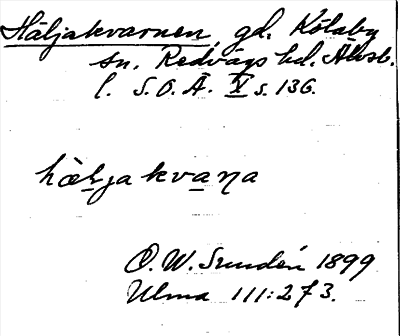 Häljakvarnen, gd. Kölaby
sn. Redvägs hd. Älvsb.
l. S.O.Ä. X s. 136.
hæljakvaṇa
O. W. Sundén 1899
Ulma 111:273.